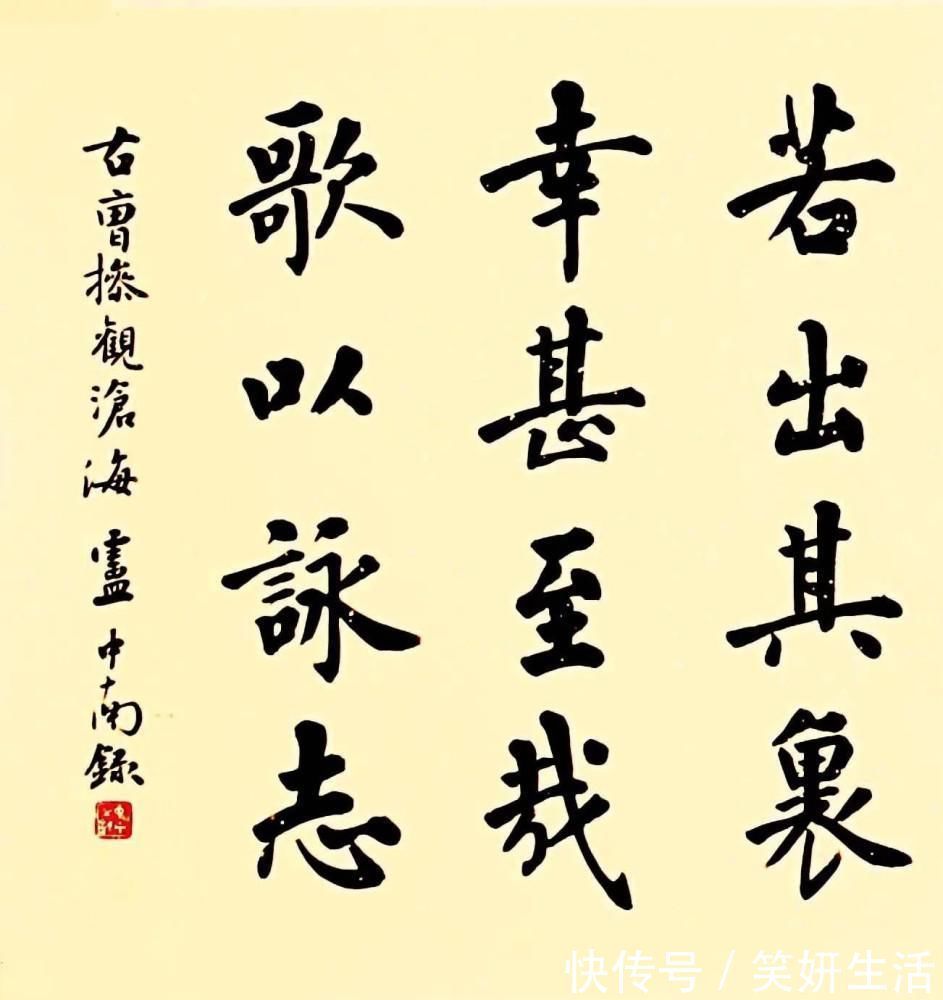 若出其裏
幸甚至哉
歌以詠志
右曹操觀滄海盧中南錄
快传号/笑妍生活